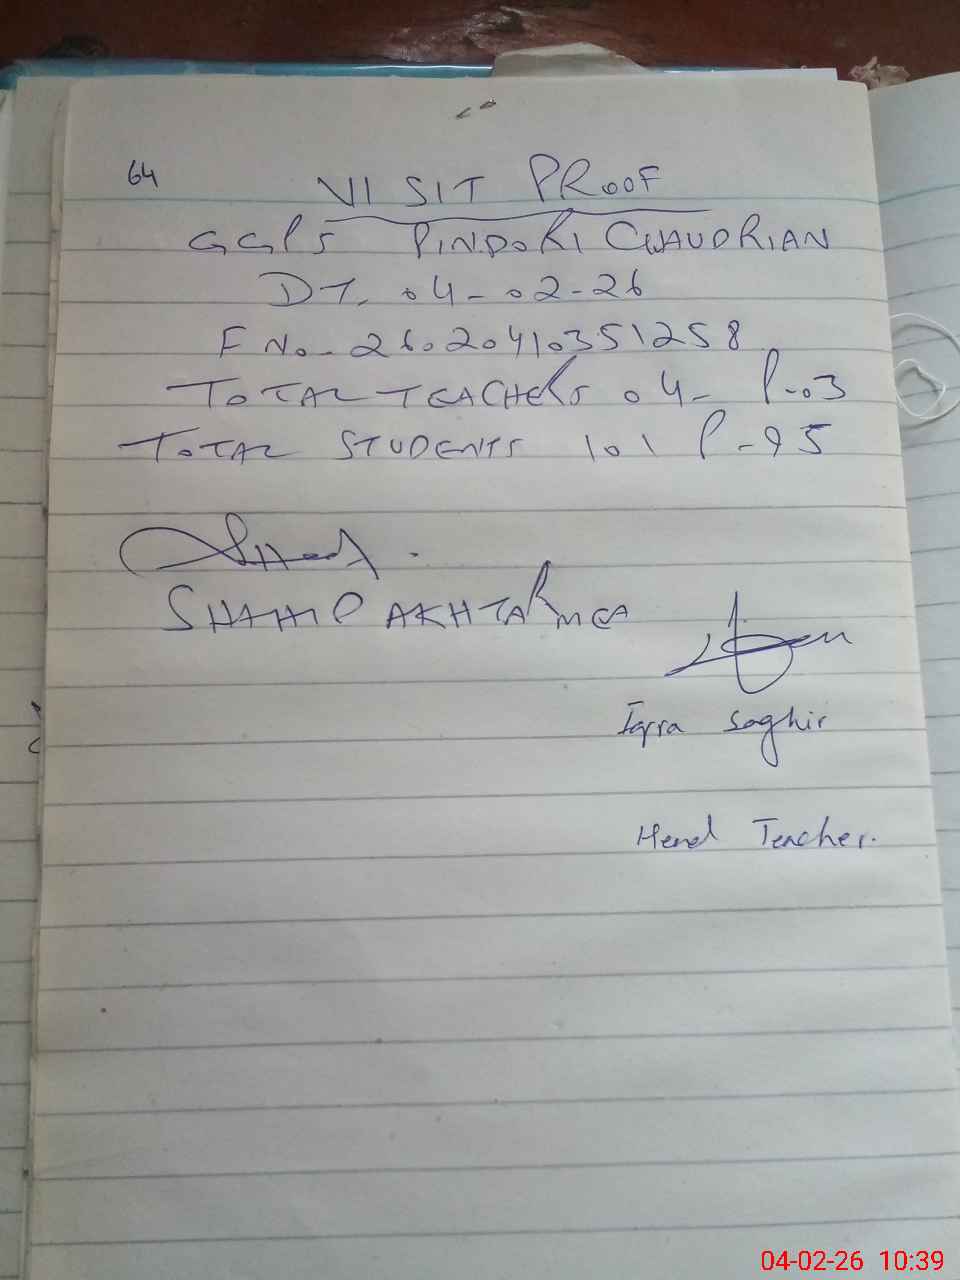 64
VISIT PROOF
GGPS PINDORI CHAUDRIAN
DT. 04-02-26
F No- 26020410351258
TOTAL TEACHERS 04- P-03
TOTAL STUDENTS 101 P-95
SHAHID AKHTAR MEA
Iqra Saghir
Head Teacher.
04-02-26 10:39